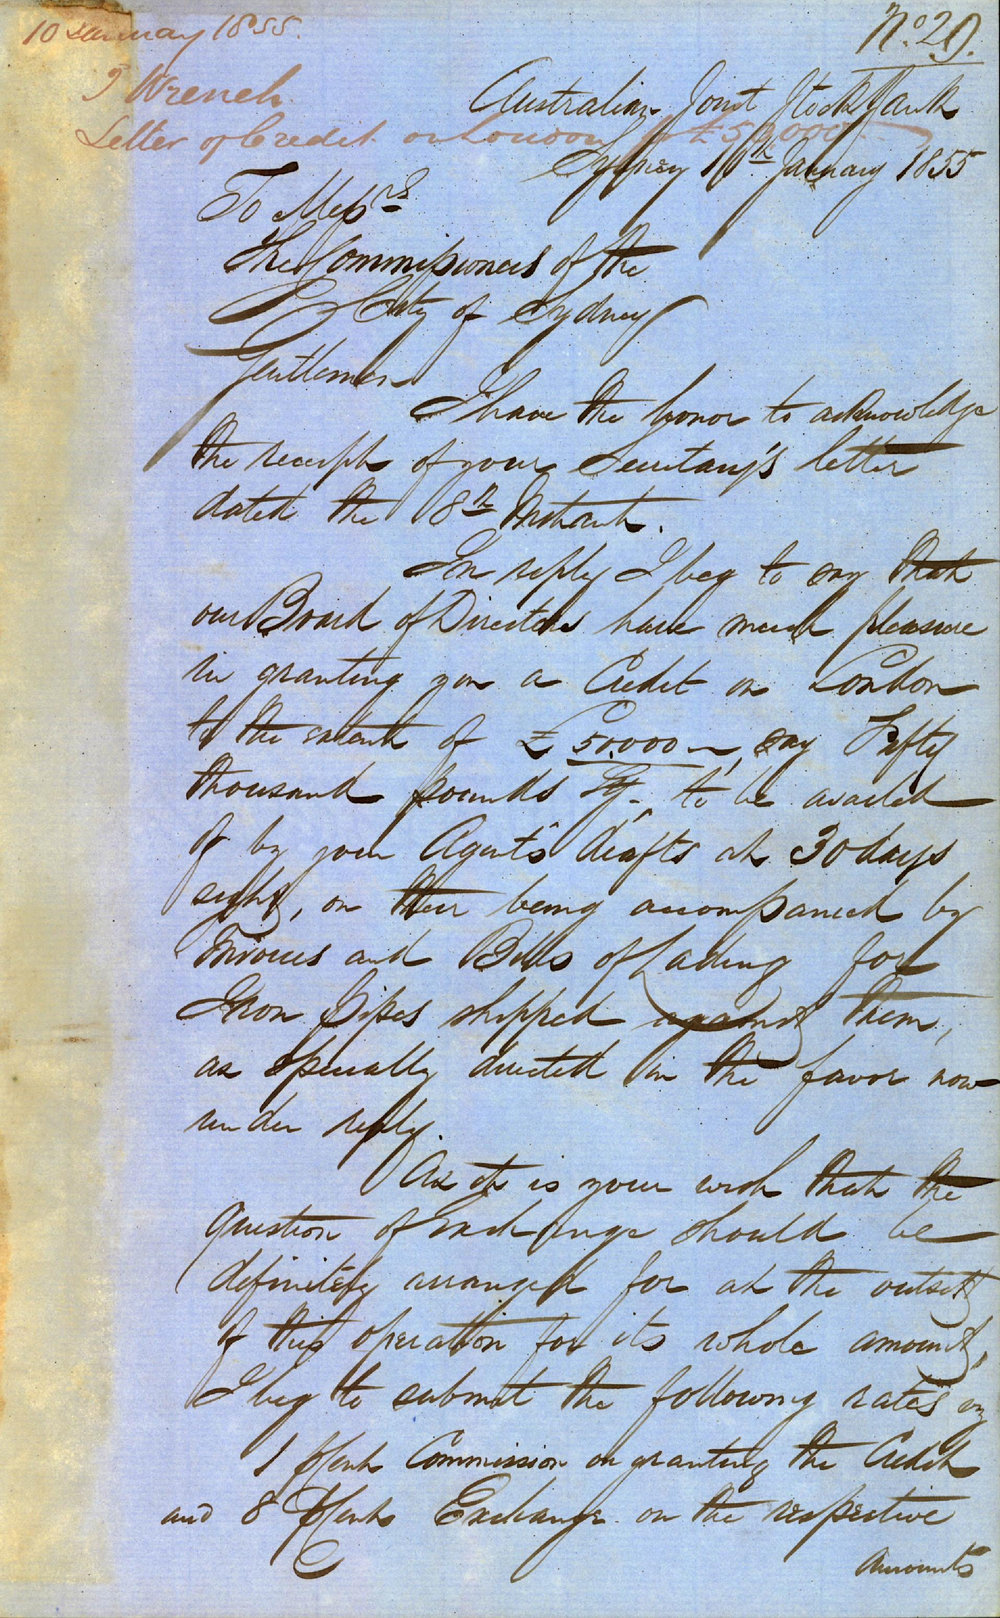 10 January 1855.
No. 20.
J Wrench.
Australian Joint Stock Bank
Letter of Credit on London £50,000
Sydney 10th January 1855
To Messrs
The Commissioners of the
City of Sydney
Gentlemen
I have the honor to acknowledge
the receipt of your Secretary's letter
dated the 8th Instant.
In reply I beg to say that
our Board of Directors have much pleasure
in granting you a Credit on London
to the extent of £50.000 - say Fifty
thousand pounds Stg. to be availed
of by your Agent's drafts at 30 days
sight, on their being accompanied by
Invoices and Bills of Lading for
Iron Pipes shipped against them,
as specially directed in the favor now
under reply.
As it is your wish that the
question of Exchange should be
definitely arranged for at the outset
of this operation for its whole amount,
I beg to submit the following rates
1 P Cent Commission on granting the Credit
and 8 P Cent Exchange on the respective
amounts